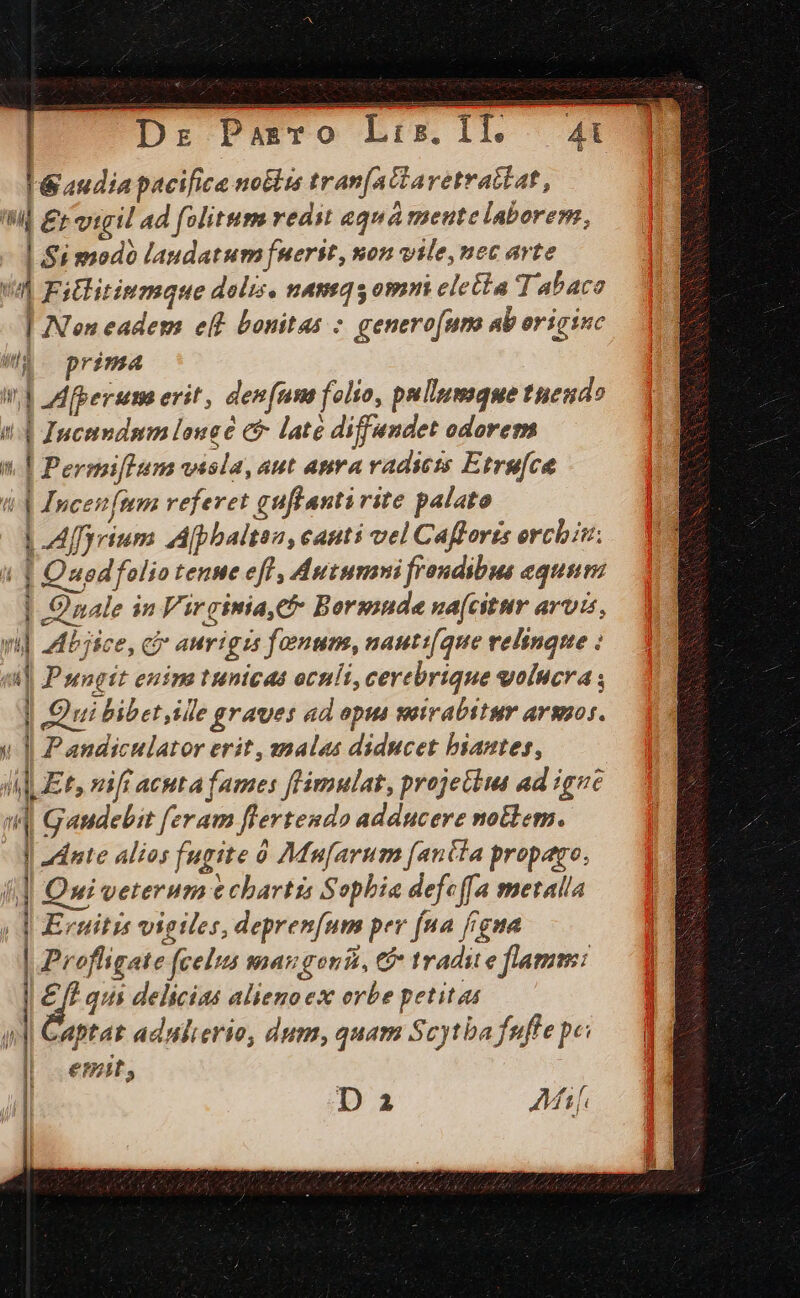 De Pæto Lib. II. 41
Gaudia pacificæ noctis transacta retractat,
Et vigil ad solitum redit æquâ mente laborem,
Si modò laudatum fuerit, non vile, nec arte
Fictitiumque dolis. namq; omni electa Tabaco
Non eadem est bonitas : generosum ab origine
prima
Asperum erit, densum folio, pullumque tuendo
Iucundum longè & latè diffundet odorem
Permistum viola, aut aura radicis Etruscæ
Incensum referet gustanti rite palato
Assyrium Asphalton, eauti vel Castoris orchin.
Quod folio tenue est, Autumni frondibus æquum
Quale in Virginia, & Bormuda nascitur arvis,
Abjice, & aurigis fœnum, nautisque relinque :
Pungit enim tunicas oculi, cerebrique volucra ;
Qui bibet, ille graves ad opus mirabitur armos.
Pandiculator erit, malas diducet hiantes,
Et, nisi acuta fames stimulat, projectus ad ignē
Gaudebit seram stertendo adducere noctem.
Ante alios fugite ô Musarum sancta propago,
Qui veterum è chartis Sophiæ defossa metalla
Eruitis vigiles, deprensum per sua signa
Profligate scelus mangonis, & tradite flammis
Est qui delicias alieno ex orbe petitas
Captat adulterio, dum, quam Scytha fuste
emit,
D 2